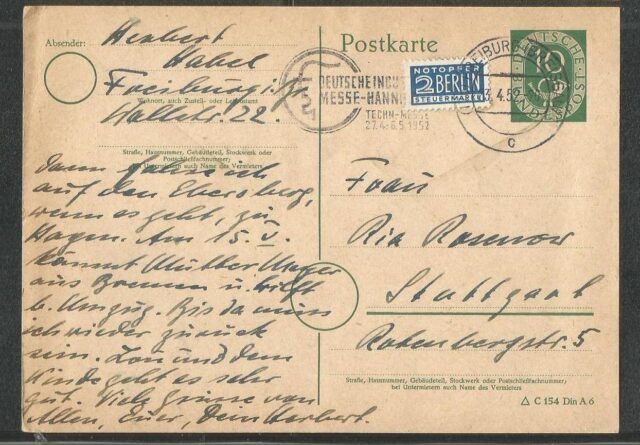 Absender:
Herbert
Habel
Freiburg i. Br.
Wohnort, auch Zustell- oder Leitpostamt
Hallestr. 22.
Straße, Hausnummer, Gebäudeteil, Stockwerk oder
Postschließfachnummer;
bei Untermietern auch Name des Vermieters
Dann fahre ich
auf den Ebersberg,
wenn es geht, zu
Hagen. Am 15. V.
kommt Mutter
aus Bremen u. hilft
b. Umzug. Bis da muss
ich wieder zurück
sein. Lou und dem
Kinde geht es sehr
gut. Viele Grüsse von
Allen, Euer, Dein Herbert.
Postkarte
DEUTSCHE INDUS
MESSE-HANN
TECHN. MESSE
27.4.-6.5.1952
NOTOPFER
2 BERLIN
STEUERMARKE
FREIBURG
4.52
c
DEUTSCHE
BUNDESPOST
10
Frau
Ria Rosenow
Stuttgart
Rotenbergstr. 5
Straße, Hausnummer, Gebäudeteil, Stockwerk oder Postschließfachnummer;
bei Untermietern auch Name des Vermieters
C 154 Din A 6